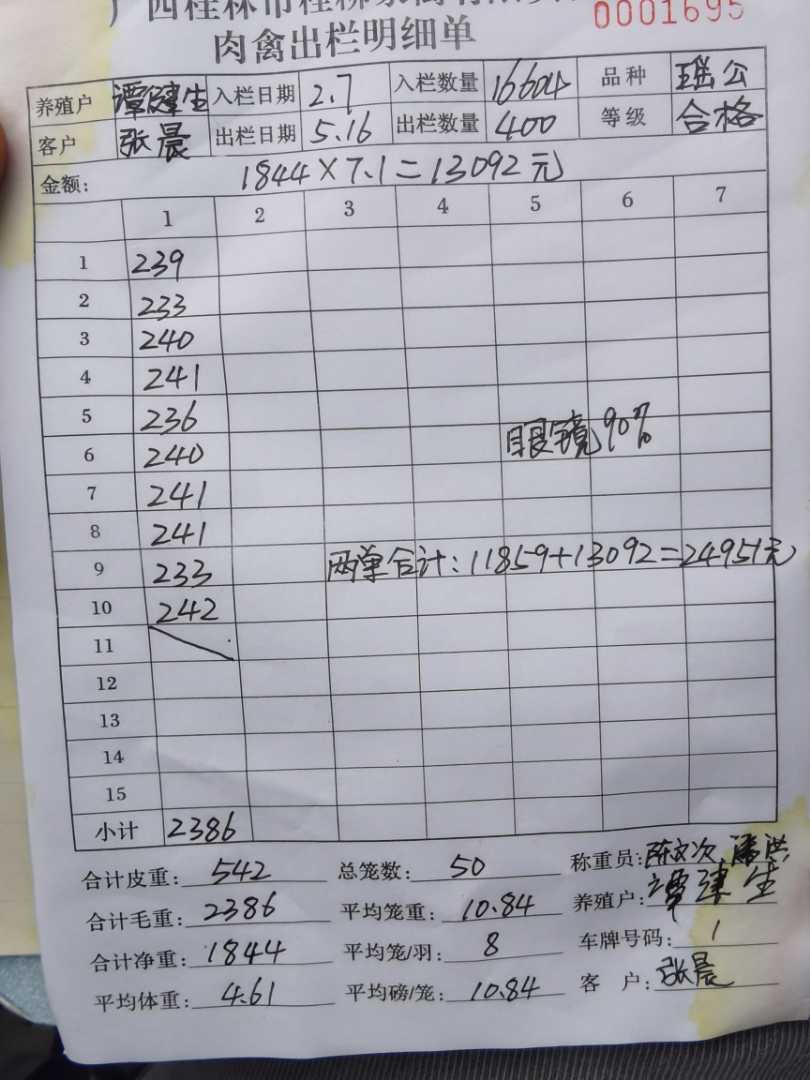 广西桂林市桂柳家禽有限责任
0001695
肉禽出栏明细单
养殖户 谭建生 入栏日期 2.7 入栏数量 16604 品种 瑶公
客户 张晨 出栏日期 5.16 出栏数量 400 等级 合格
金额: 1844×7.1=13092元
1 2 3 4 5 6 7
1 239
2 233
3 240
4 241
5 236
6 240
眼镜90%
7 241
8 241
9 233
两单合计:11859+13092=24951元
10 242
11
12
13
14
15
小计 2386
合计皮重: 542 总笼数: 50 称重员: 陈文次 潘洪
合计毛重: 2386 平均笼重: 10.84 养殖户: 谭建生
合计净重: 1844 平均笼/羽: 8 车牌号码: 1
平均体重: 4.61 平均磅/笼: 10.84 客户: 张晨